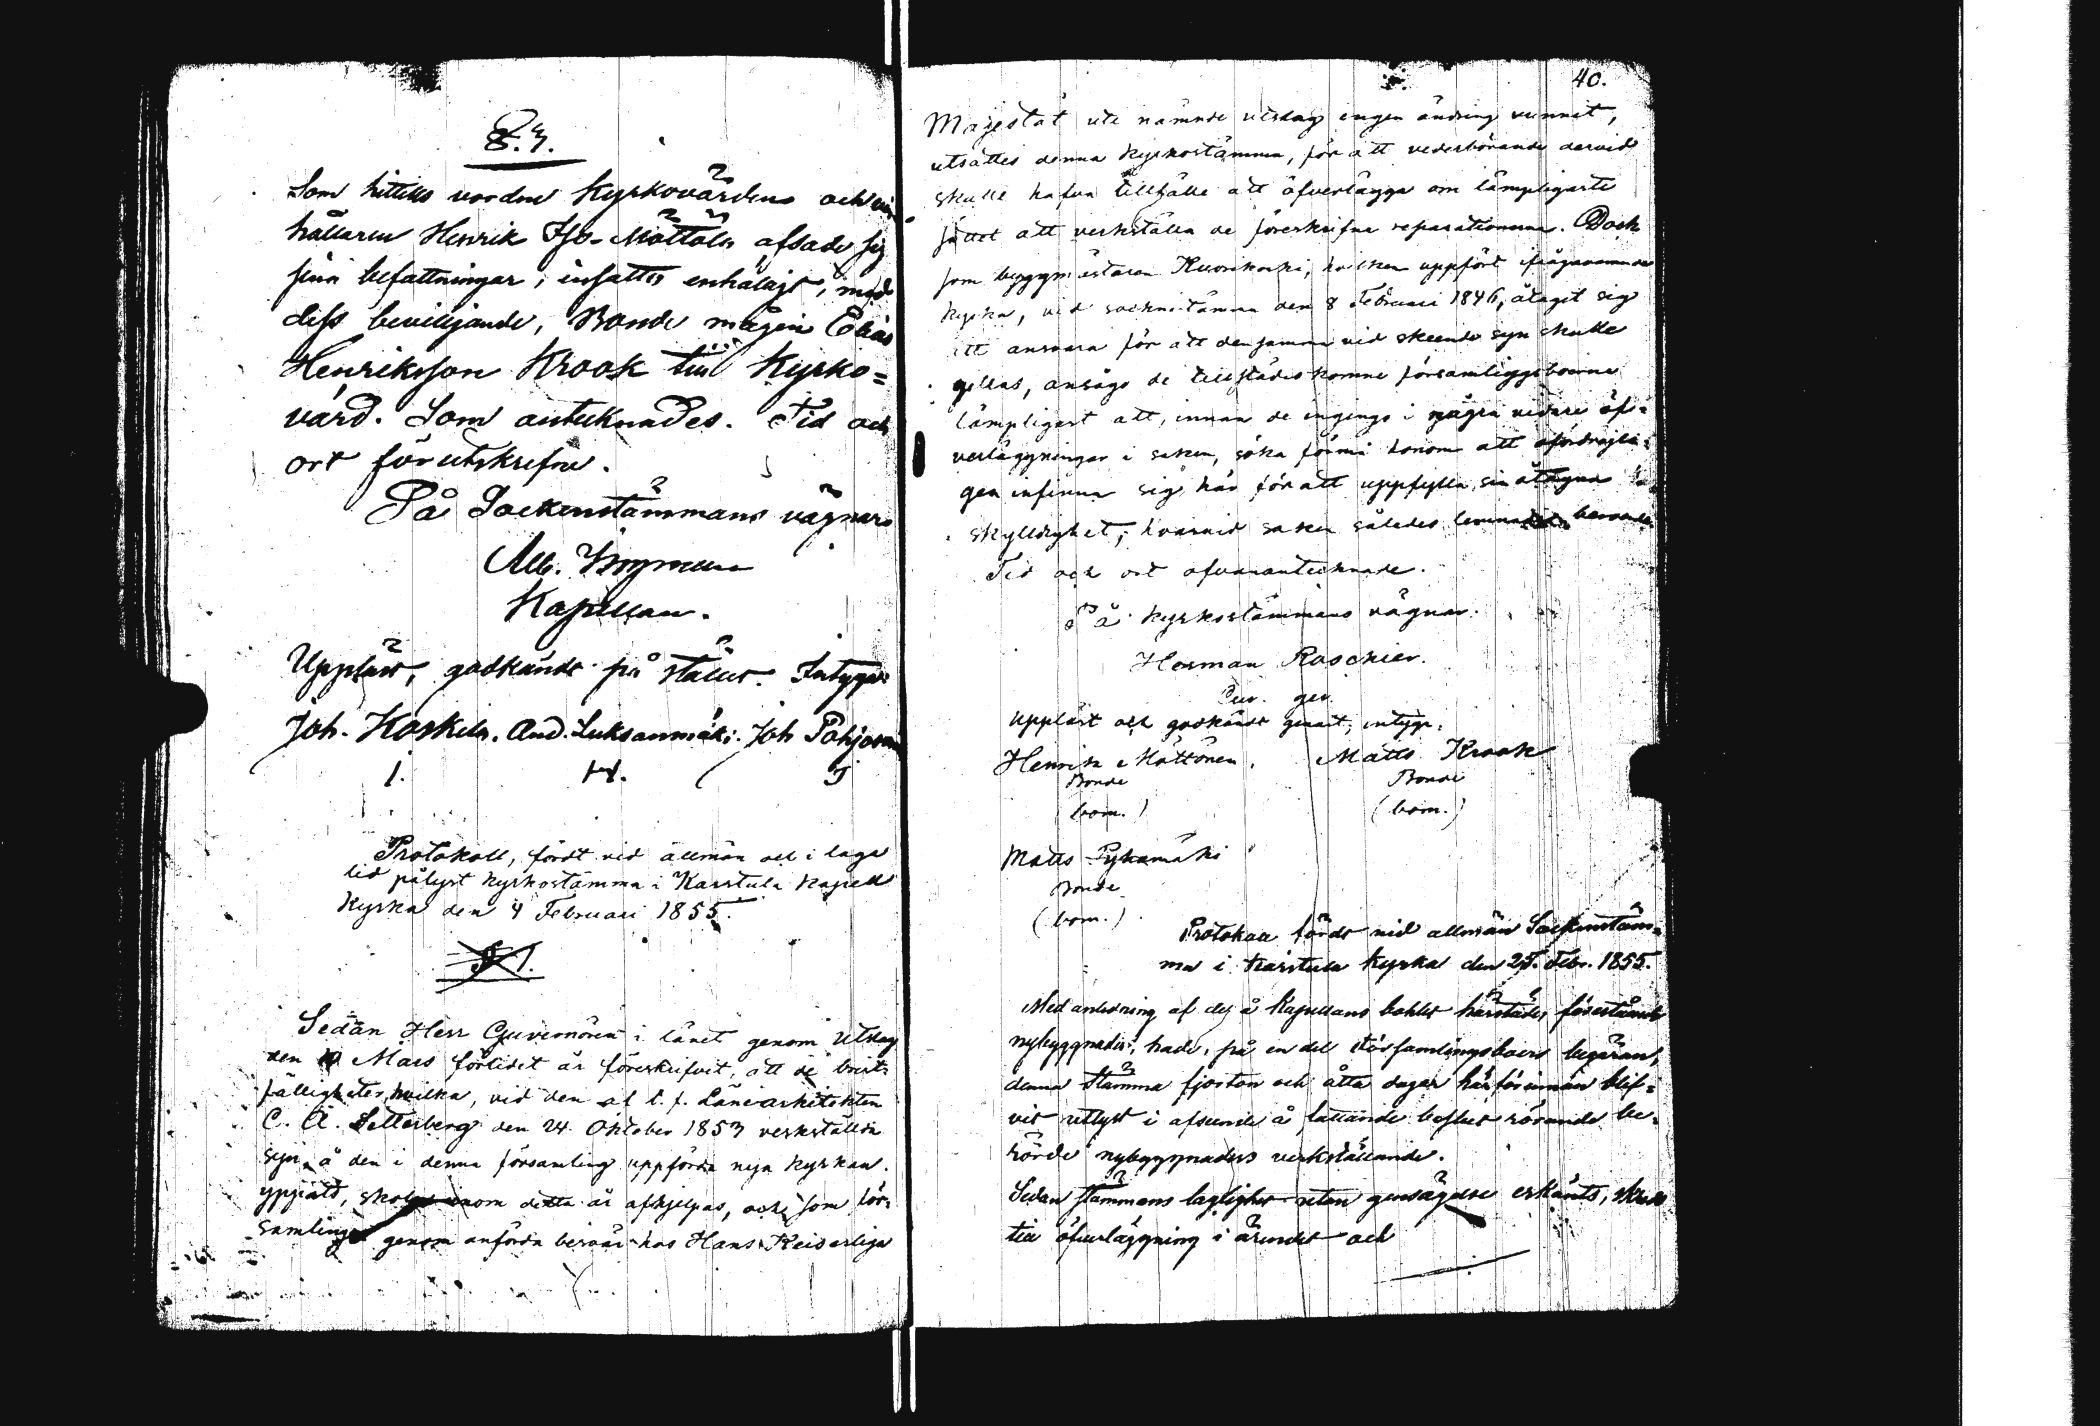 §. 3.
Som hittils vordne Kyrkovärdens och
hållaren Henrik Iso-Möttöler afsade sig
sina befattningar, insattes enhäligt, med
dess beviljande, Bonde mågen Elias
Henriksson Krook till Kyrko=
värd. Som antecknades. Tid och
ort förutskrefne.
På Sockenstämmans vägnar
Alb. 
Kapellan.
Uppläst, godkändt på stället. Intyga:
Joh. Koskela. And. Luksanmäki. Joh Pohjonen
Protokoll, fördt vid allmän och i laga
tid pålyst kyrkostämma i Karstula Kapell
Kyrka den 4 Februari 1855.
§ 1.
Sedan Herr Guvernören i länet genom Utslag
den 10 Mars förlidet år föreskrifvit, att de brist-
fälligheter, hvilka, vid den af t. f. Länearkitekten
C. A. Setterberg den 24 Oktober 1853 verkställda
syn å den i denna församling uppförda nya kyrkan.
yppats, skola inom detta år afhjelpas, och som för-
samlingen genom anförda besvär hos Hans Keiserliga
40.
Majestät uti nämnde utslag ingen ändring vunnit,
utsattes denna kyrkostämma, för att vederbörande dervid
skulle hafva tillfälle att öfverlägga om lämpligaste
sättet att verkställa de föreskrifne reparationerna. Dock
som byggmästaren Kuorikoski, hvilken uppfört ifrågavarande
kyrka, vid sockenstämma den 8 Februari 1846, åtagit sig
att ansvara för att densamma vid skeende syn skulle
gillas, ansågo de tillstädeskomne församlingsboerne
lämpligast att, innan de ingingo i några vidare öf-
verläggningar i saken, söka förmå honom att ofördröjli-
gen infinna sig här för att uppfylla sin åtagna
skyldighet; hvarvid saken således lemnades beroende
Tid och ort ofvanantecknade.
På kyrkostämmans vägnar.
Herman Roschier.
uppläst och godkändt genast, intyga:
Henrik Möttönen. Matts Krook
Bonde Bonde
(bom.) (bom.)
Matts Pykämäki
Bonde
(bom.)
Protokoll fördt vid allmän Sockenstäm=
ma i Karstula Kyrka den 25. Febr. 1855.
Med anledning af dej å Kapellans bohlet härstädes förestående
nybyggnader, hade, på en del Församlingsboers begäran,
denna Stämma fjorton och åtta dagar härförinnan blif=
vit utlyst i afseende å fattande beslut rörande be=
rörde nybyggnaders verkställande.
Sedan Stämmans laglighet utan gensägelse erkänts, skreds
till öfverläggning i ärendet och